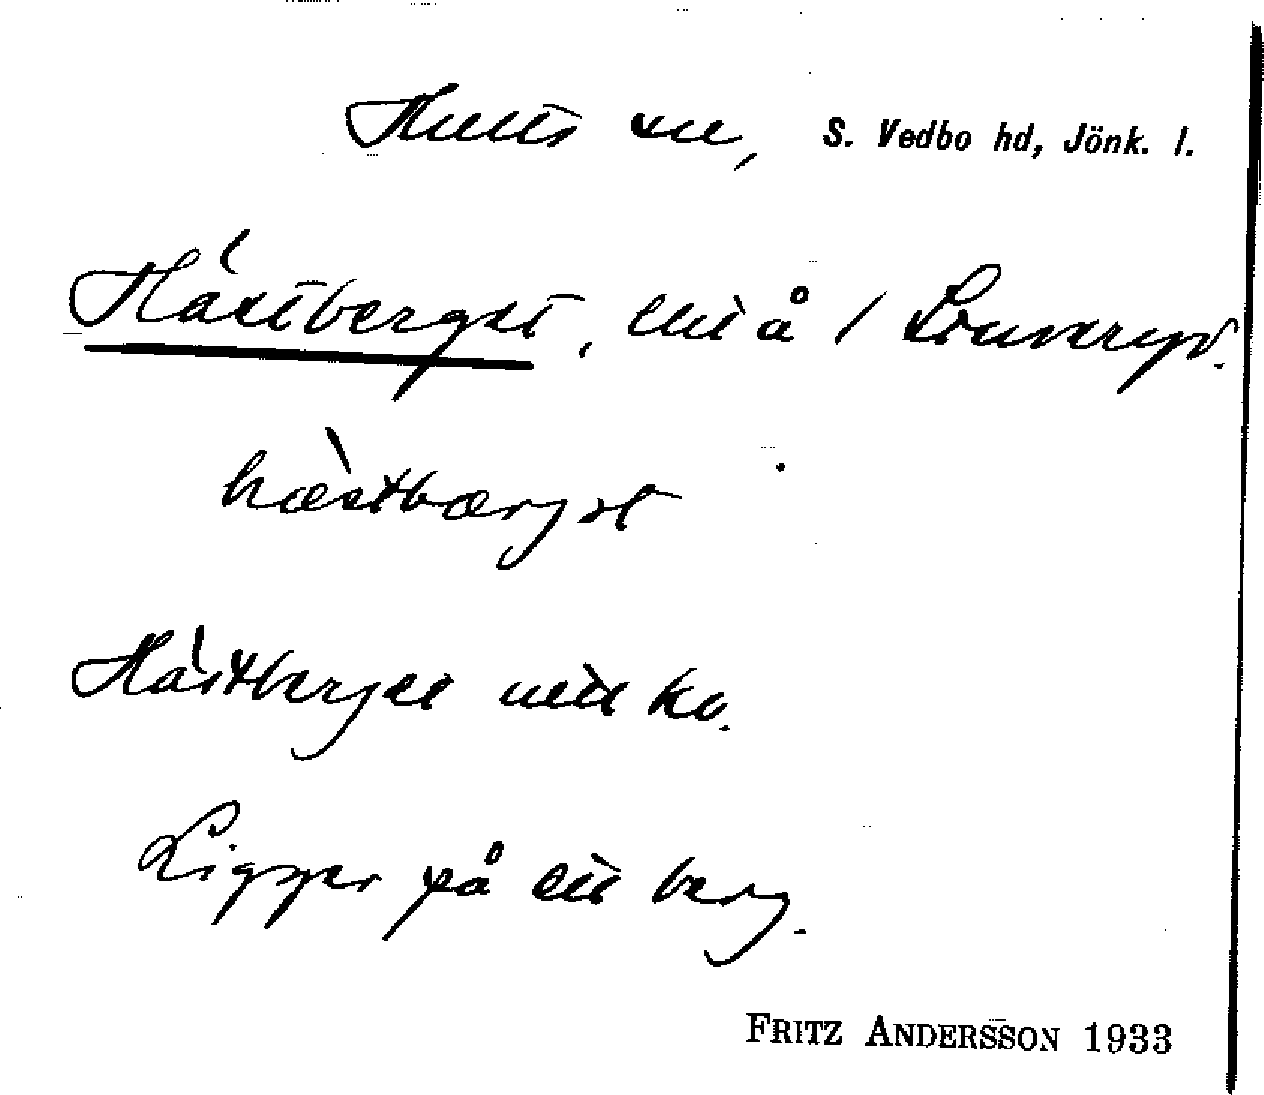 Hults sn, S. Vedbo hd, Jönk. l.
Hästberget, lht å / Lönneryd.
hæstbærjət
Hästberget utt ko.
Ligger på ett berg.
FRITZ ANDERSSON 1933